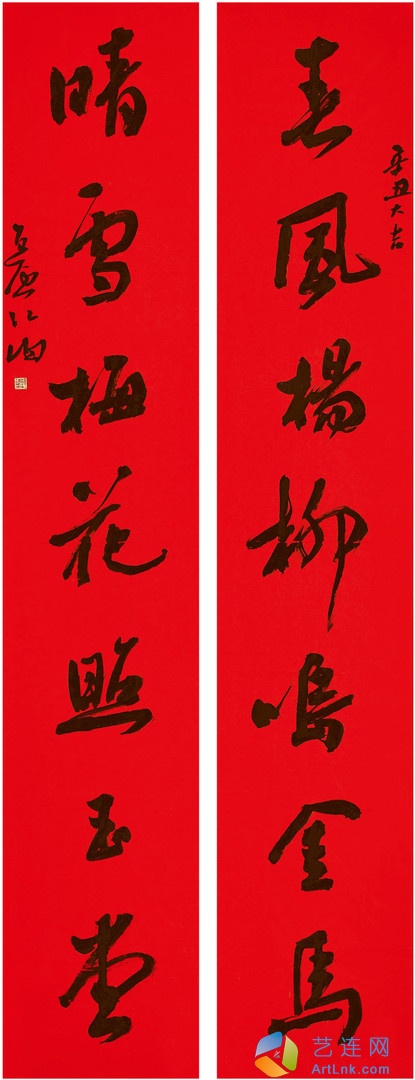 辛丑大吉
春風楊柳鳴金馬
晴雪梅花照玉堂
艺连网
ArtLnk.com